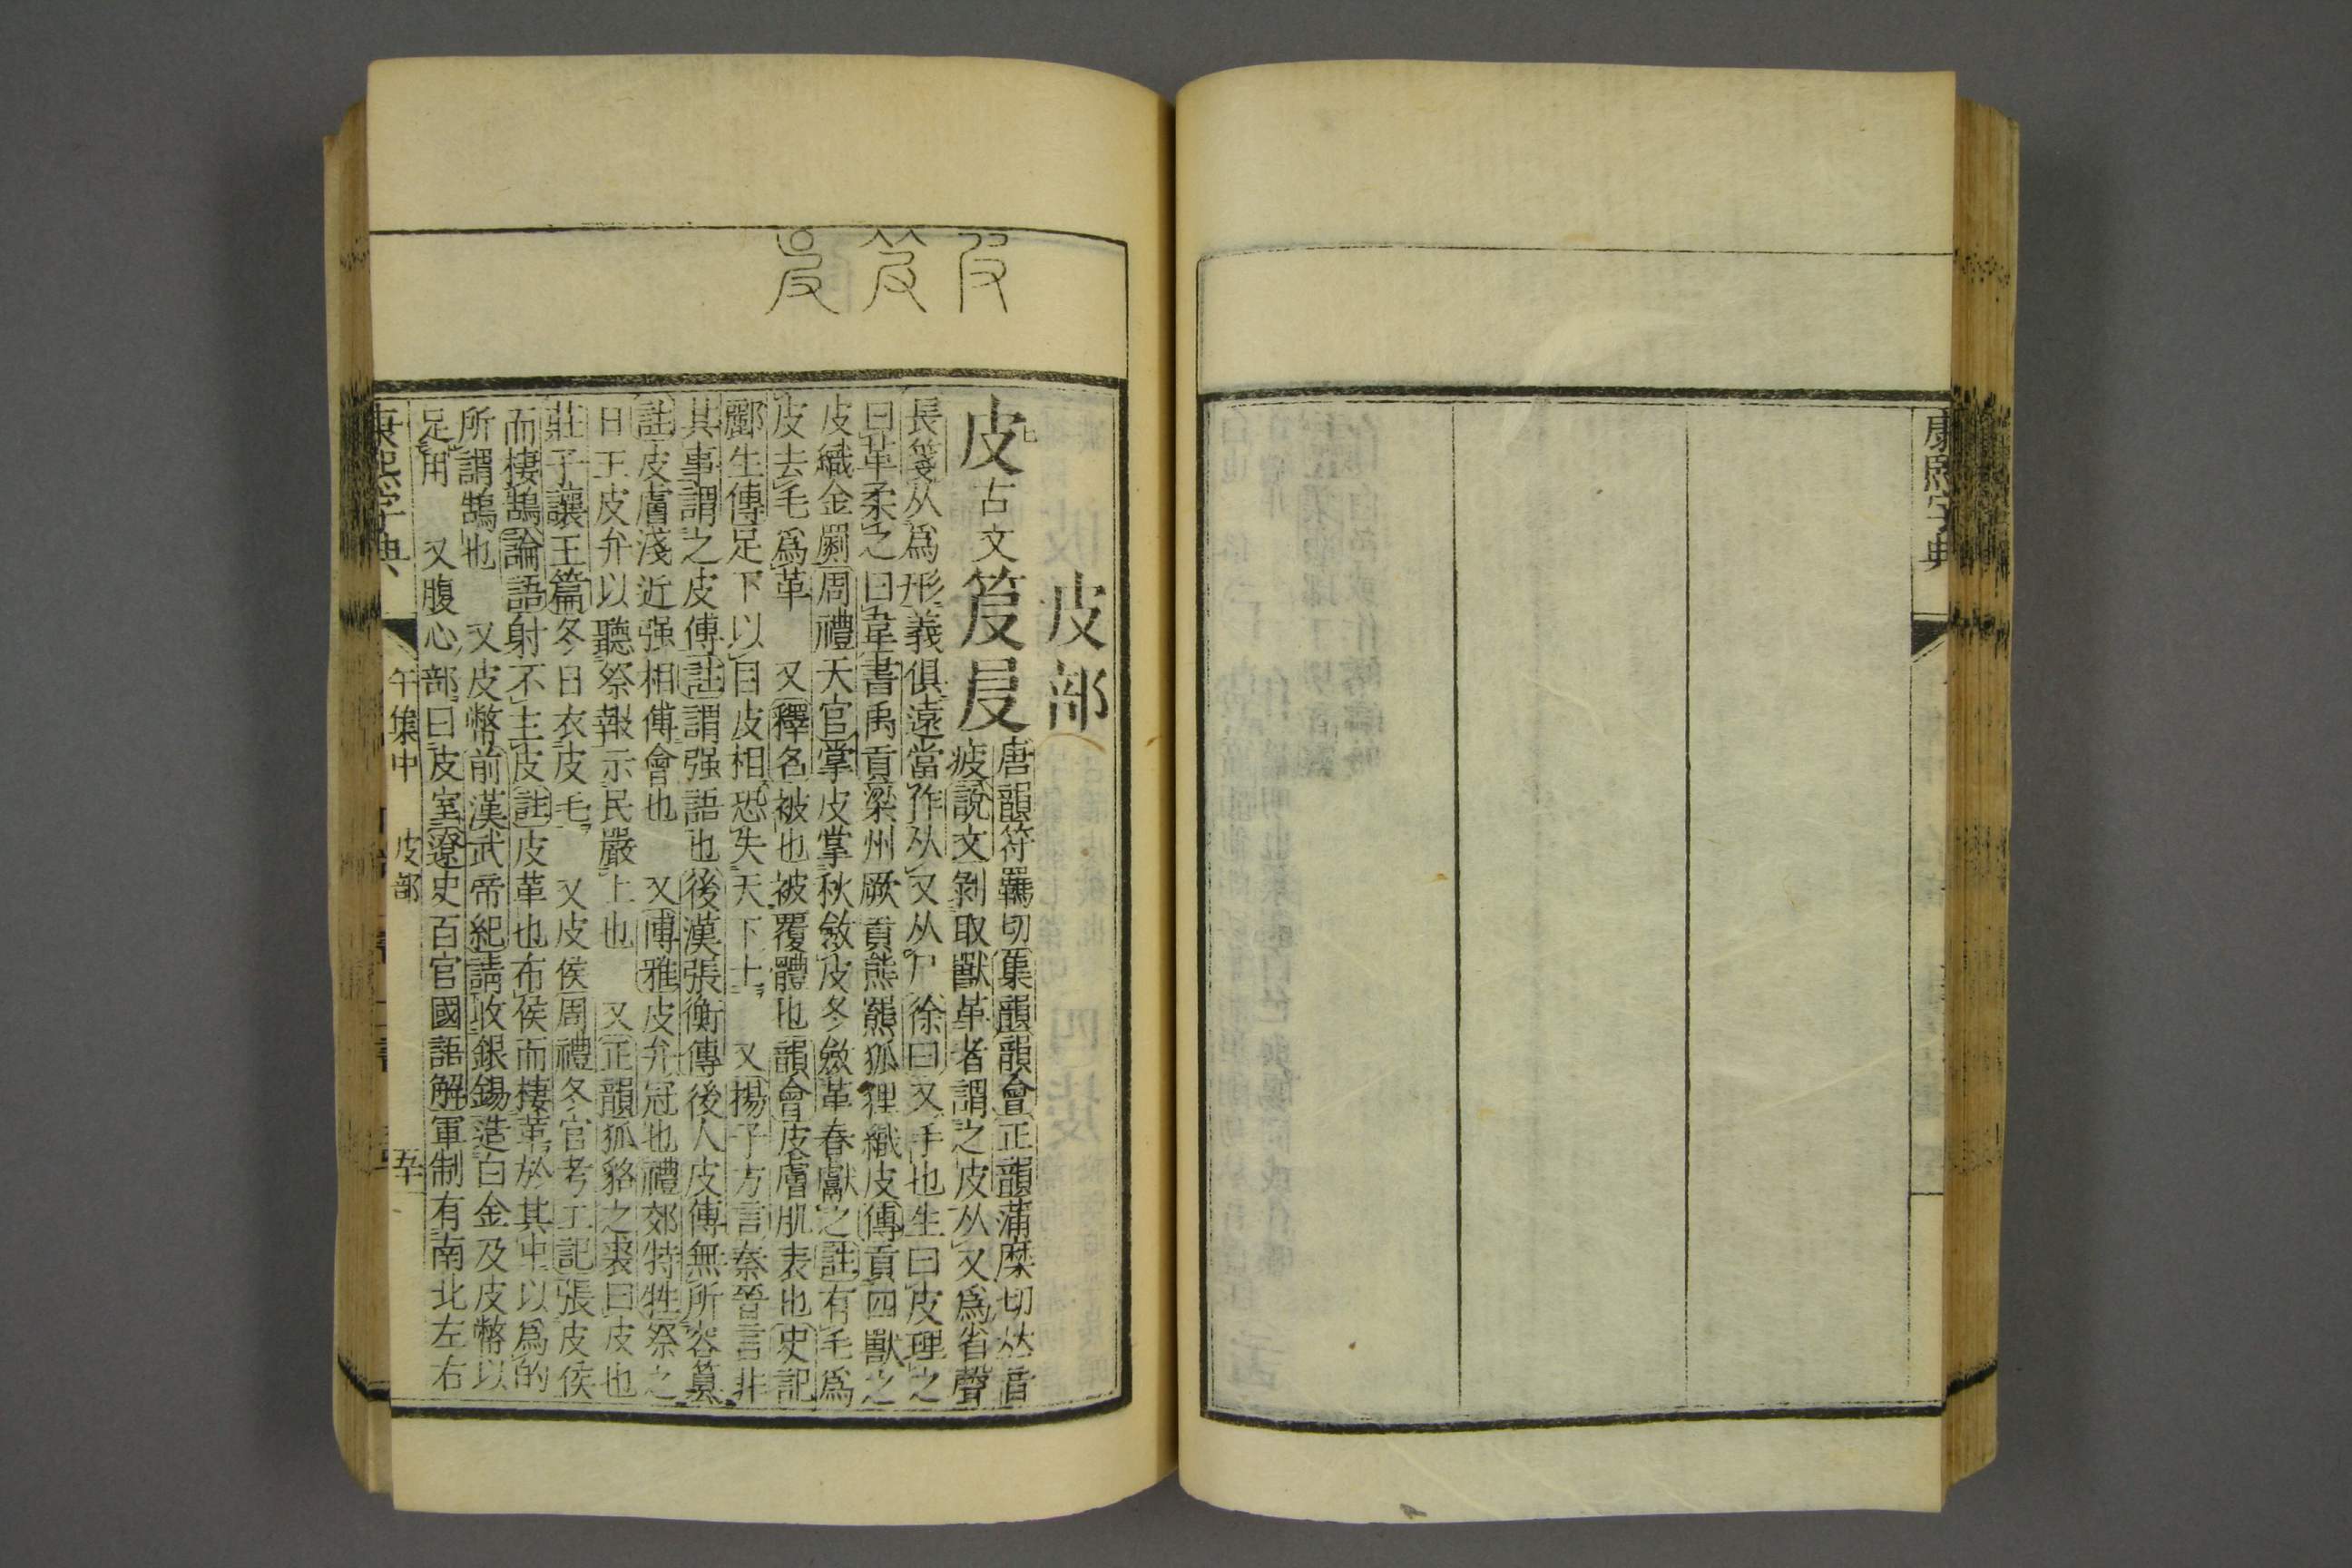 康熙字典
皮部
皮 古文
唐韻符羈切集韻韻會正韻蒲縻切𠀤音
疲說文剝取獸革者謂之皮从又爲省聲
長箋从爲形義俱遠當作从又从尸徐曰又手也生曰皮理之
曰革柔之曰韋書禹貢梁州厥貢熊羆狐狸織皮傳貢四獸之
皮織金罽周禮天官掌皮掌秋斂皮冬斂革春獻之註有毛爲
皮去毛爲革 又釋名被也被覆體也韻會皮膚肌表也史記
酈生傳足下以目皮相恐失天下士 又揚子方言秦晉言非
其事謂之皮傅註謂强語也後漢張衡傳後人皮傅無所容篡
註皮膚淺近强相傅會也 又博雅皮弁冠也禮郊特牲祭之
日王皮弁以聽祭報示民嚴上也 又正韻狐貉之裘曰皮也
莊子讓王篇冬日衣皮毛 又皮侯周禮冬官考工記張皮侯
而棲鵠論語射不主皮註皮革也布侯而棲革於其中以爲的
所謂鵠也 又皮幣前漢武帝紀請收銀錫造白金及皮幣以
足用 又腹心部曰皮室遼史百官國語解軍制有南北左右
康熙字典 午集中 皮部